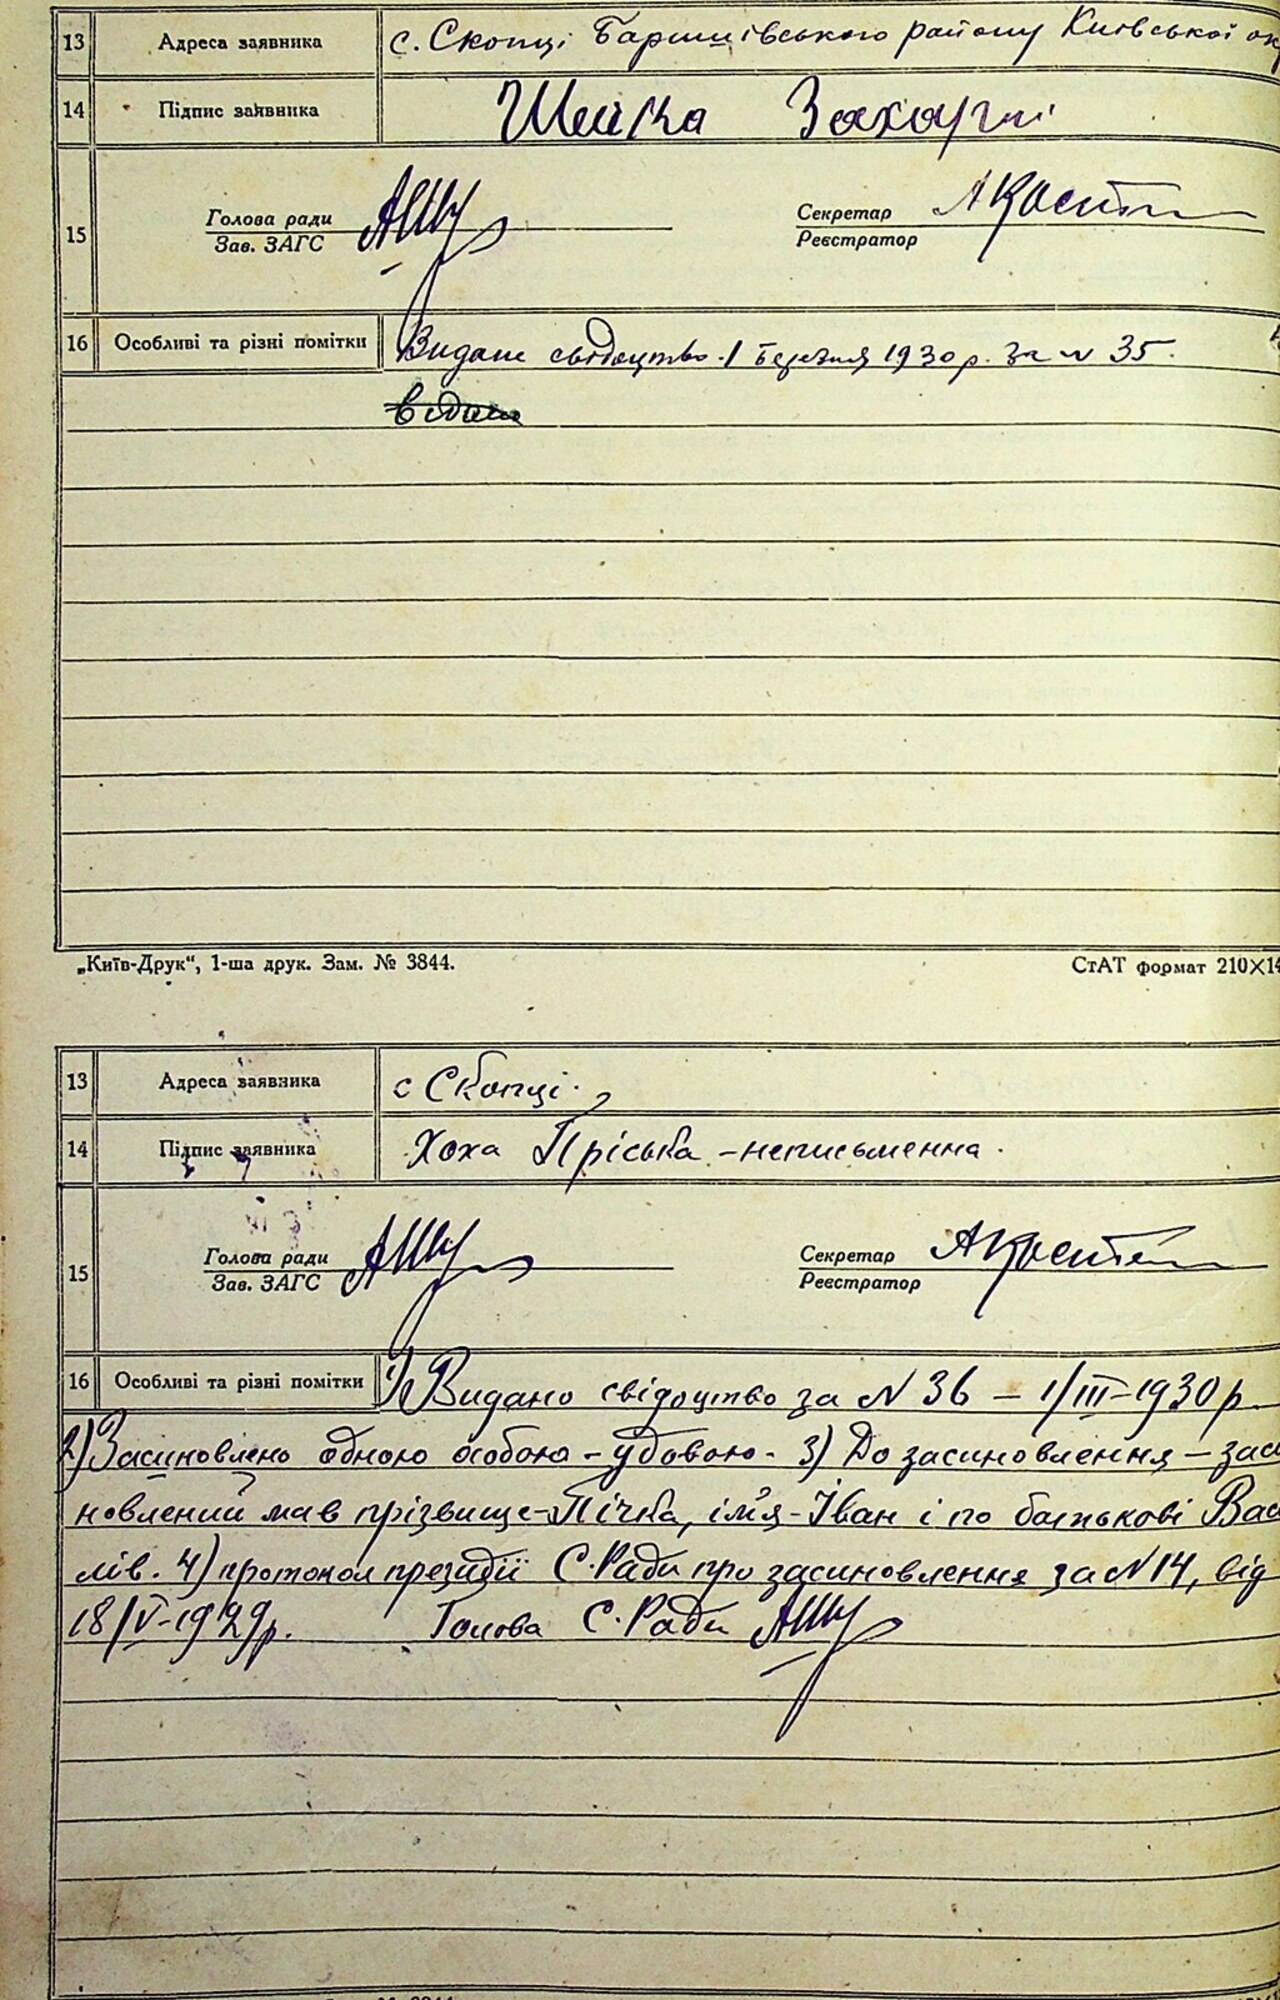 13 Адреса заявника с. Скопці Баришівського району Київської ок
14 Підпис заявника Шийка Захарій
15 Голова ради Секретар
Зав. ЗАГС Реєстратор
16 Особливі та різні помітки Видане свідоцтво 1 березня 1930 р. за N 35.
„Київ-Друк“, 1-ша друк. Зам. № 3844. СтАТ формат 210×14
13 Адреса заявника с Скопці.
14 Підпис заявника Хоха Пріська – неписьменна.
15 Голова ради Секретар
Зав. ЗАГС Реєстратор
16 Особливі та різні помітки 1) Видано свідоцтво за N 36 – 1/III–1930 р
2) Засиновлено одною особою – удовою. 3) До засиновлення – заси
новлений мав прізвище – Пічка, ім'я – Іван і по батькові Васи
лів. 4) протокол президії С. Ради про засиновлення за N 14, від
18/V–1929 р. Голова С. Ради